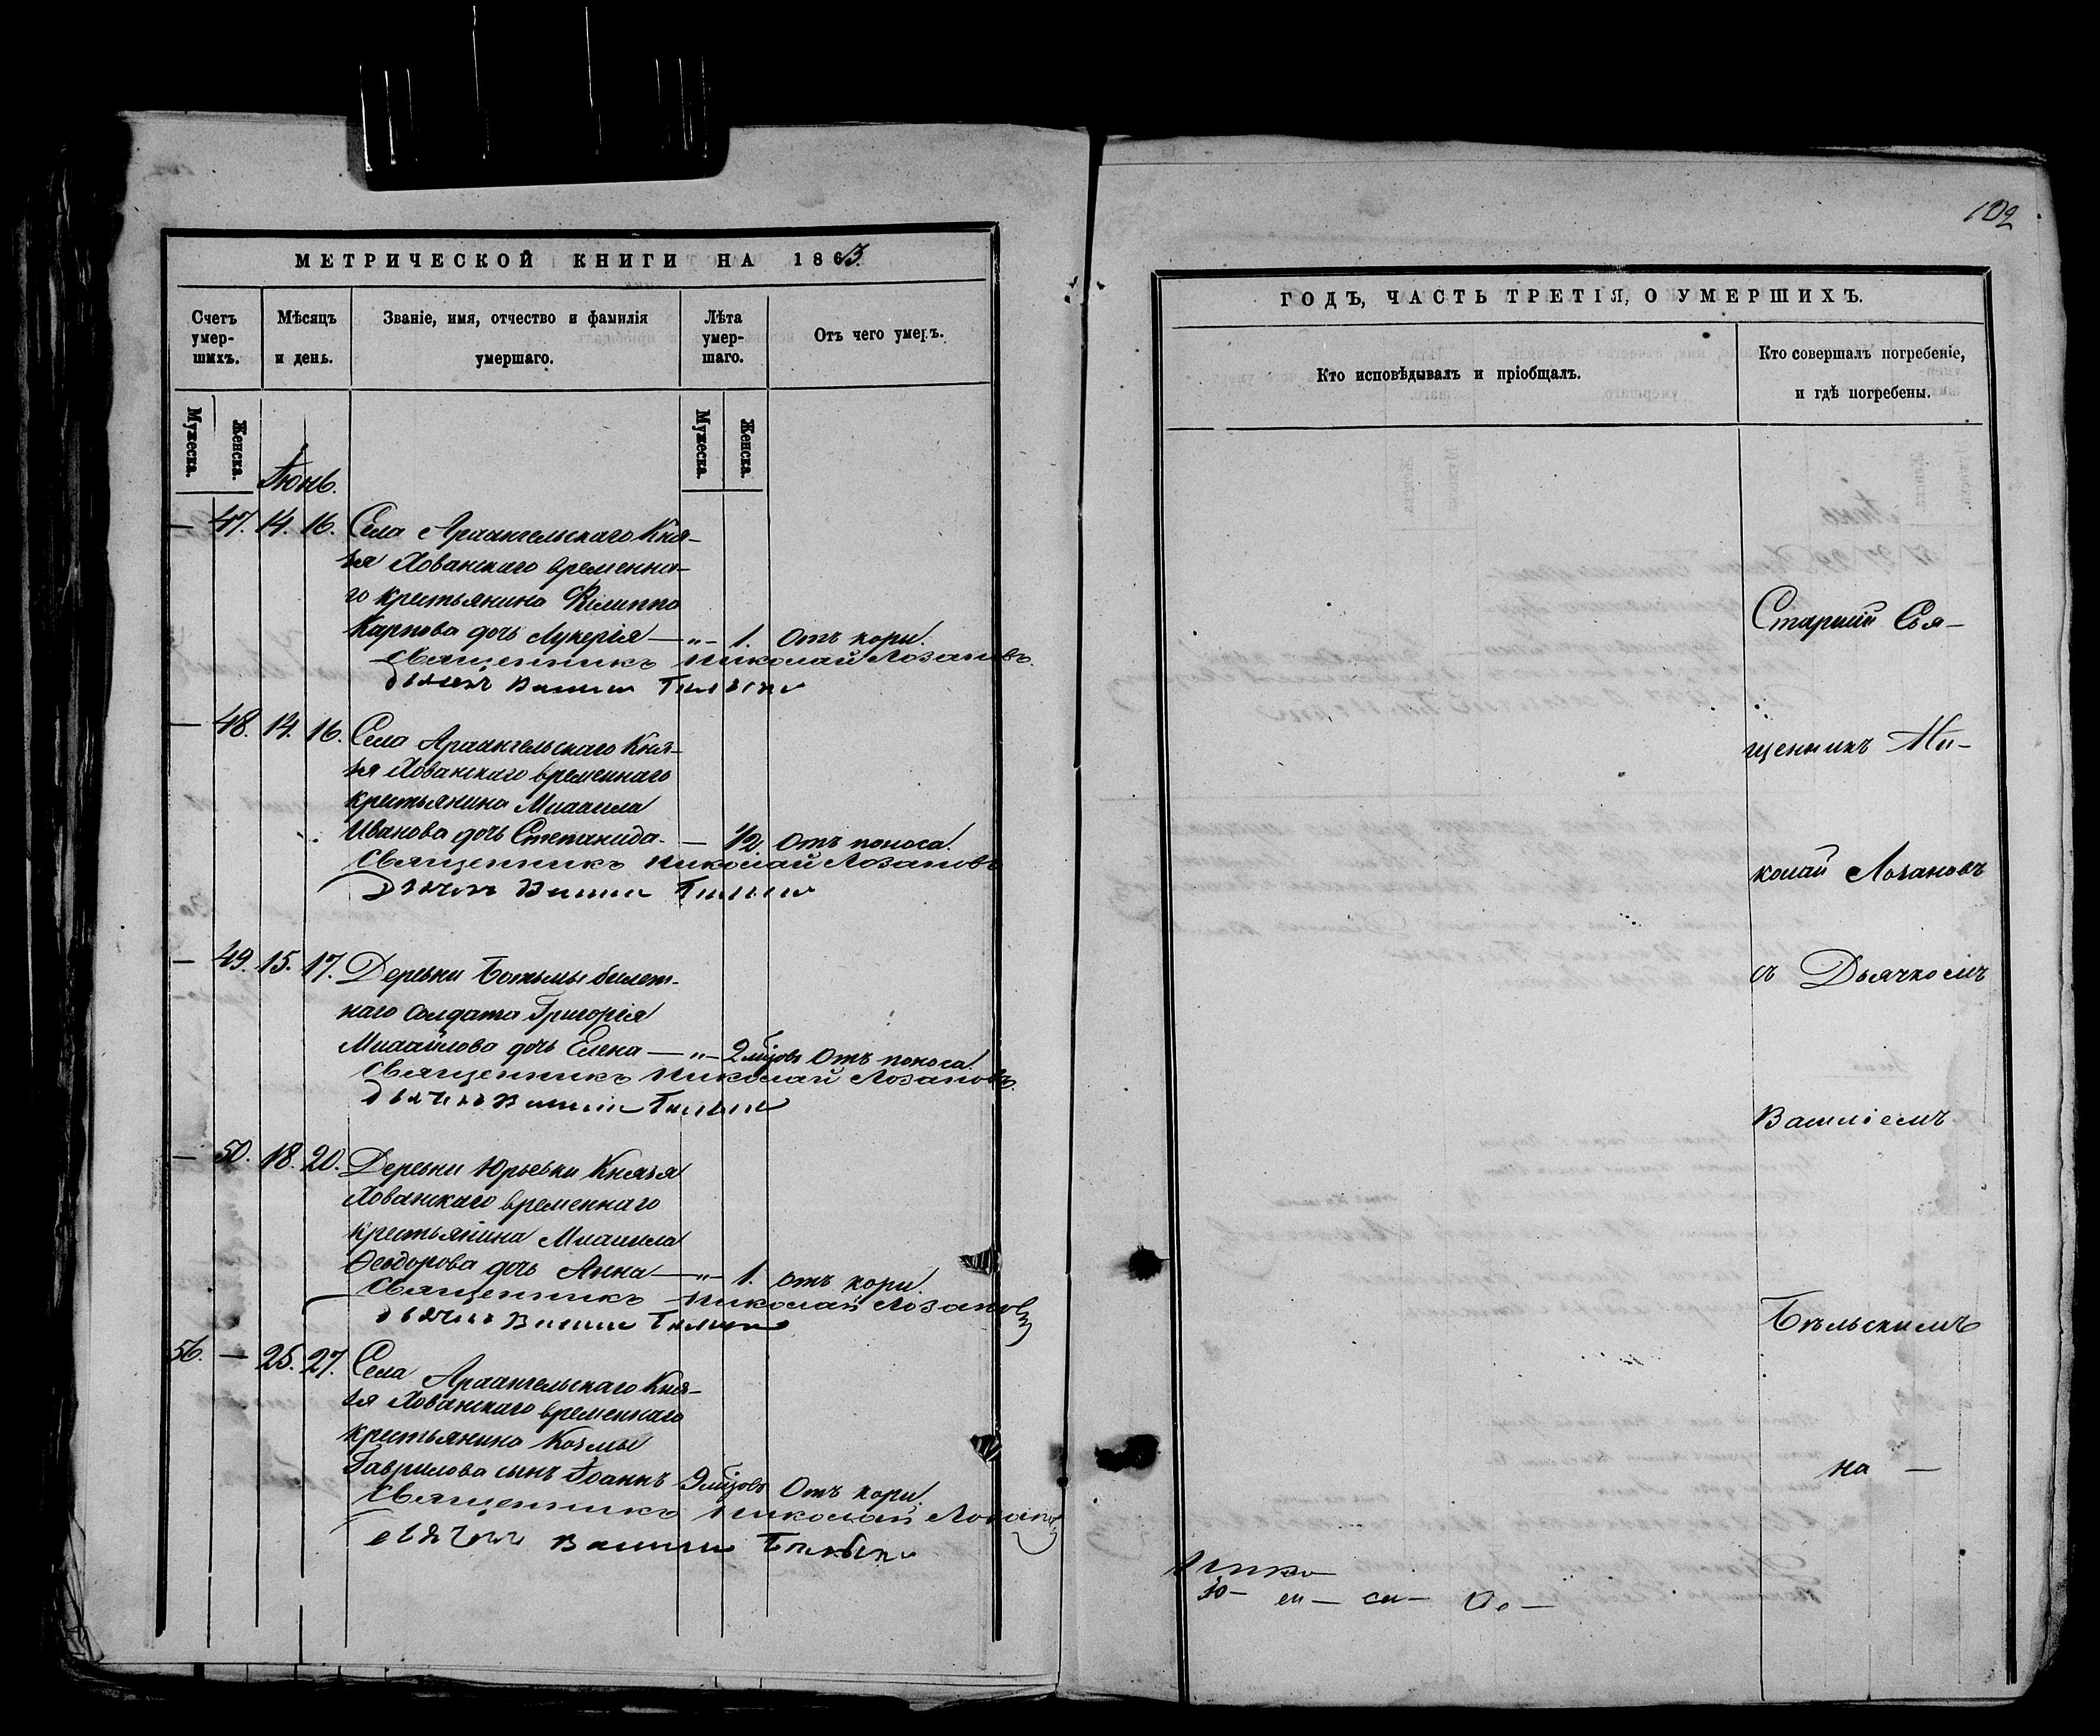 МЕТРИЧЕСКОЙ КНИГИ НА 1863.
Счетъ умер-шихъ.
Мѣсяцъ и день.
Званіе, имя, отчество и фамилія умершаго.
Лѣта умер-шаго.
Отъ чего умеръ.
Мужеска. Женска.
Мужеска. Женска.
Іюнь.
— 47. 14. 16. Села Архангельскаго Кня-
зя Хованскаго временна-
го крестьянина Филиппа
Карпова дочь Лукерія — „ — 1. Отъ кори.
Священникъ Николай Лозановъ.
— 48. 14. 16. Села Архангельскаго Кня-
зя Хованскаго временнаго
крестьянина Михаила
Иванова дочь Степанида. — 1/2 Отъ поноса.
Священникъ Николай Лозановъ
— 49. 15. 17. Деревни Ботьмы билет-
наго солдата Григорія
Михайлова дочь Елена — „ — 2 мѣцовъ Отъ поноса.
Священникъ Николай Лозановъ.
— 50. 18. 20. Деревни Юрьевки Князя
Хованскаго временнаго
крестьянина Михаила
Ѳеодорова дочь Анна — „ — 1. отъ кори.
Священникъ Николай Лозановъ
56. — 25. 27. Села Архангельскаго Кня-
зя Хованскаго временнаго
крестьянина Козмы
Гаврилова сынъ Іоаннъ 9 мѣцовъ Отъ кори.
Священникъ Николай Лозановъ
102
ГОДЪ, ЧАСТЬ ТРЕТІЯ, О УМЕРШИХЪ.
Кто исповѣдывалъ и пріобщалъ.
Кто совершалъ погребеніе, и гдѣ погребены.
Старшій Свя-
щенникъ Ни-
колай Лозановъ
съ Дьячкомъ
Василіемъ
Бѣльскимъ
на —